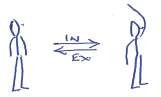 IN
EX